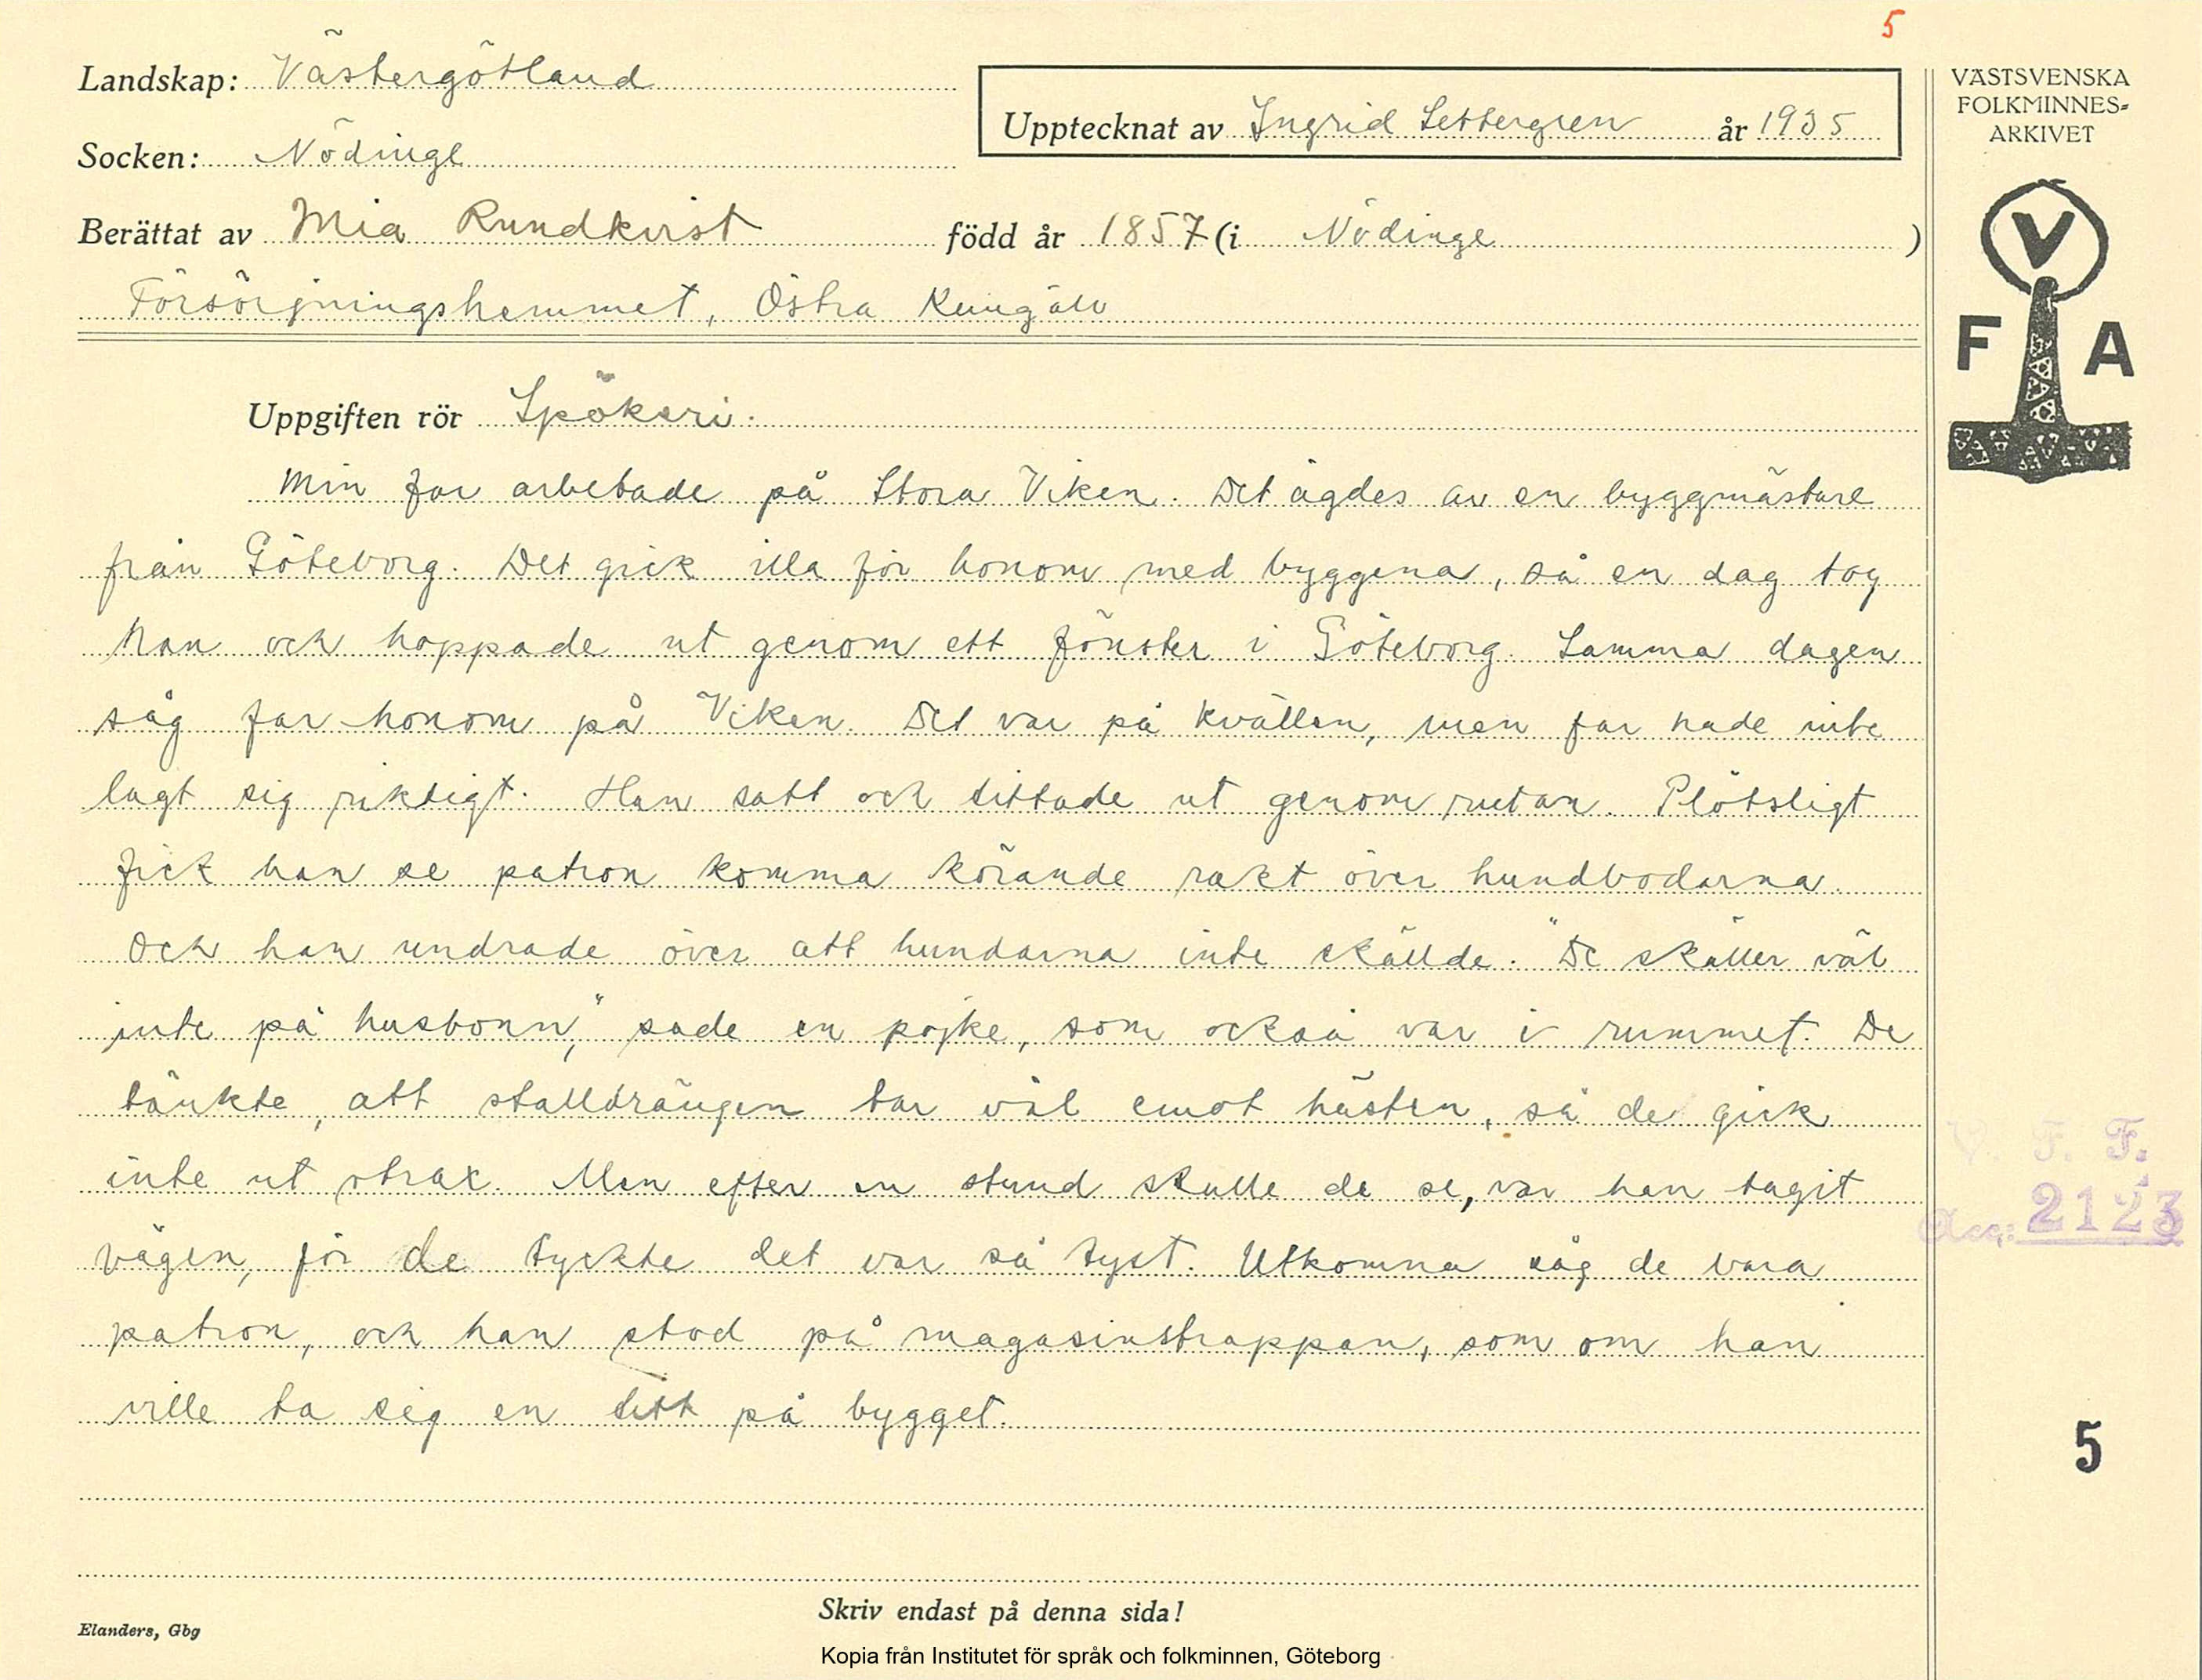 5
Landskap: Västergötland
Socken: Nödinge
Upptecknat av Ingrid Settergren år 1935
Berättat av Mia Rundkvist född år 1857 (i Nödinge )
Försörjningshemmet, Östra Kungälv
VÄSTSVENSKA
FOLKMINNES-
ARKIVET
V
F A
Uppgiften rör Spökeri.
Min far arbetade på Stora Viken. Det ägdes av en byggmästare
från Göteborg. Det gick illa för honom med byggena, så en dag tog
han och hoppade ut genom ett fönster i Göteborg. Samma dagen
såg far honom på Viken. Det var på kvällen, men far hade inte
lagt sig riktigt. Han satt och tittade ut genom rutan. Plötsligt
fick han se patron komma körande rakt över hundbodarna.
Och han undrade över att hundarna inte skällde. "De skäller väl
inte på husbonn," sade en pojke, som också var i rummet. De
tänkte, att stalldrängen tar väl emot hästen, så de gick
inte ut strax. Men efter en stund skulle de se, var han tagit
vägen, för de tyckte det var så tyst. Utkomna såg de bara
patron, och han stod på magasinstrappan, som om han
ville ta sig en titt på bygget.
V. F. F.
Acq: 2123
5
Skriv endast på denna sida!
Elanders, Gbg
Kopia från Institutet för språk och folkminnen, Göteborg